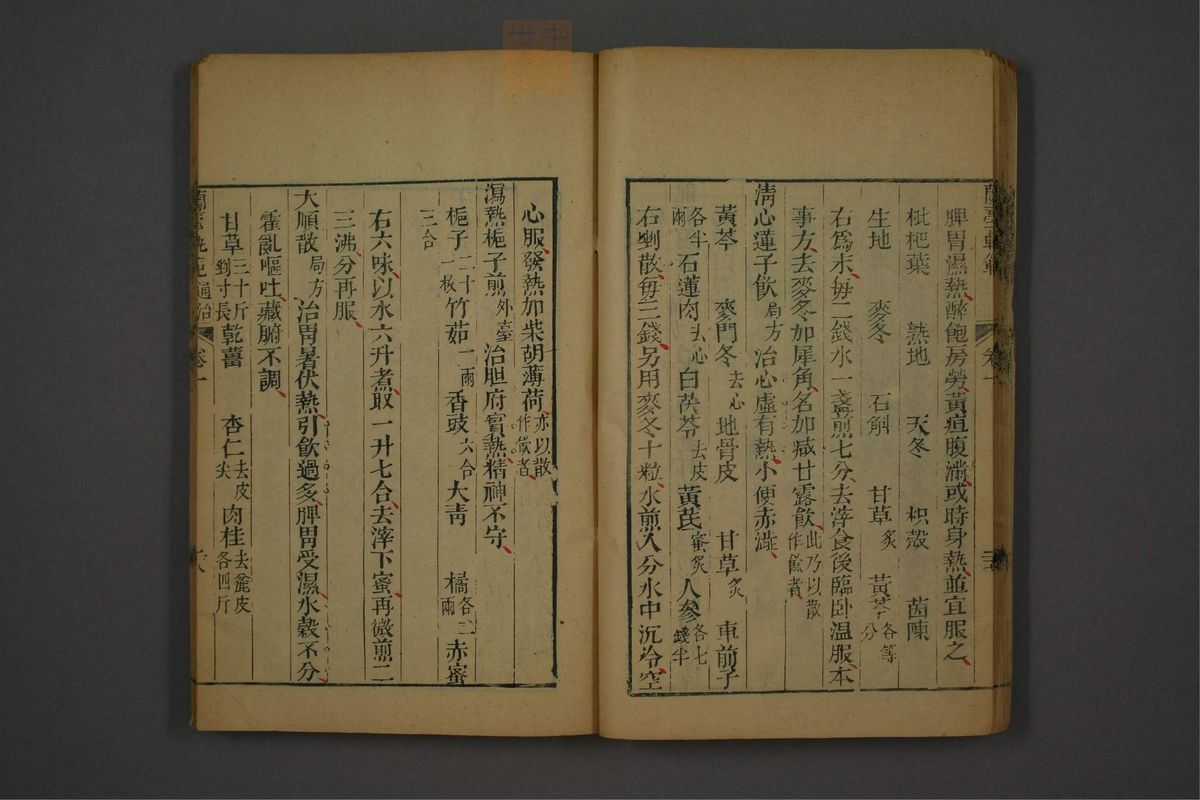 脾胃濕熱醉飽房勞黃疸腹滿或時身熱並宜服之
枇杷葉 熟地 天冬 枳殼 茵陳
生地 麥冬 石斛 甘草炙 黃芩各等分
右爲末每二錢水一盞煎七分去滓食後臨臥温服本
事方去麥冬加犀角名加减甘露飲此乃以散作飲者
清心蓮子飲局方 治心虛有熱小便赤澁
黃芩 麥門冬去心 地骨皮 甘草炙 車前子
各半兩石蓮肉去心 白茯苓去皮 黃芪蜜炙 人參各七錢半
右剉散每三錢另用麥冬十粒水煎八分水中沉冷空
心服發熱加柴胡薄荷亦以散作飲者
瀉熱梔子煎外臺 治胆府實熱精神不守
梔子二十一枚 竹茹一兩 香豉六合 大靑 橘各二兩 赤蜜
三合
右六味以水六升煮取一升七合去滓下蜜再微煎二
三沸分再服
大順散局方 治胃暑伏熱引飲過多脾胃受濕水穀不分
霍亂嘔吐藏腑不調
甘草三十斤剉寸長 乾薑 杏仁去皮尖 肉桂去麄皮各四斤
蘭臺軌範 通治 卷一